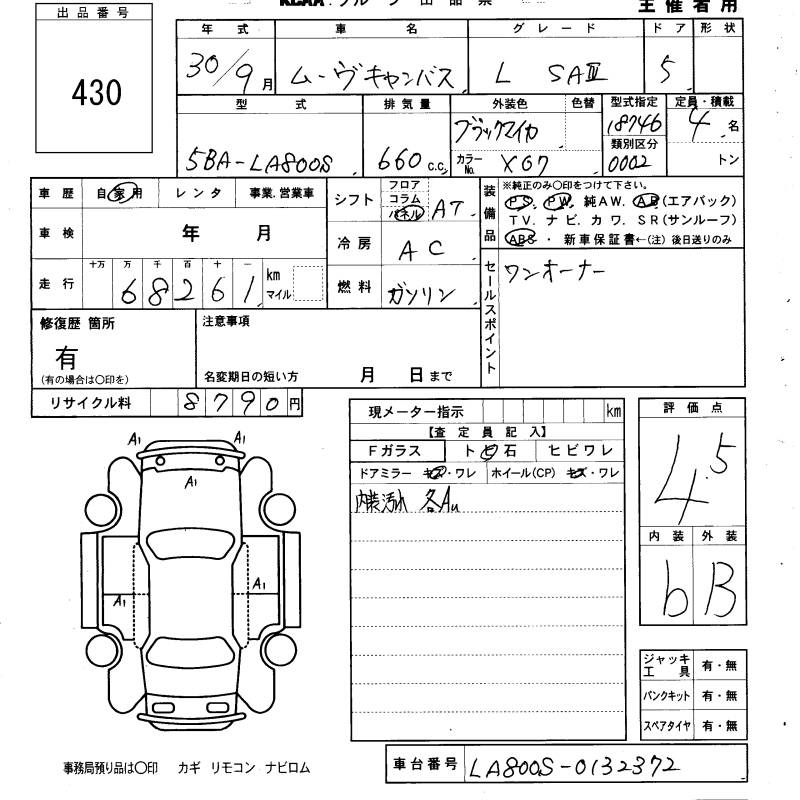 出品番号
430
主催者用
年式 車名 グレード ドア 形状
30/9月 ムーヴキャンバス L SAⅢ 5
型式 排気量 外装色 色替 型式指定 定員・積載
5BA-LA800S 660 c.c. ブラックマイカ 18746 4名
カラーNo. X07 類別区分 0002 トン
車歴 自家用 レンタ 事業.営業車
車検 年 月
走行 十万 万 千 百 十 一
68261 km マイル
シフト フロア コラム パネル AT
冷房 AC
燃料 ガソリン
装備品 ※純正のみ○印をつけて下さい。
PS. PW. 純AW. AB(エアバック)
TV. ナビ. カワ. SR(サンルーフ)
ABS ・ 新車保証書←(注) 後日送りのみ
セールスポイント ワンオーナー
修復歴 箇所
有
(有の場合は○印を)
注意事項
名変期日の短い方 月 日まで
リサイクル料 8790円
現メーター指示 km
【査定員記入】
Fガラス トビ石 ヒビワレ
ドアミラー キズ・ワレ ホイール(CP) キズ・ワレ
内装汚れ 各A
評価点
4.5
内装 外装
b B
A1 A1
A1
A1
A1
ジャッキ工具 有・無
パンクキット 有・無
スペアタイヤ 有・無
事務局預り品は○印 カギ リモコン ナビロム
車台番号 LA800S-0132372